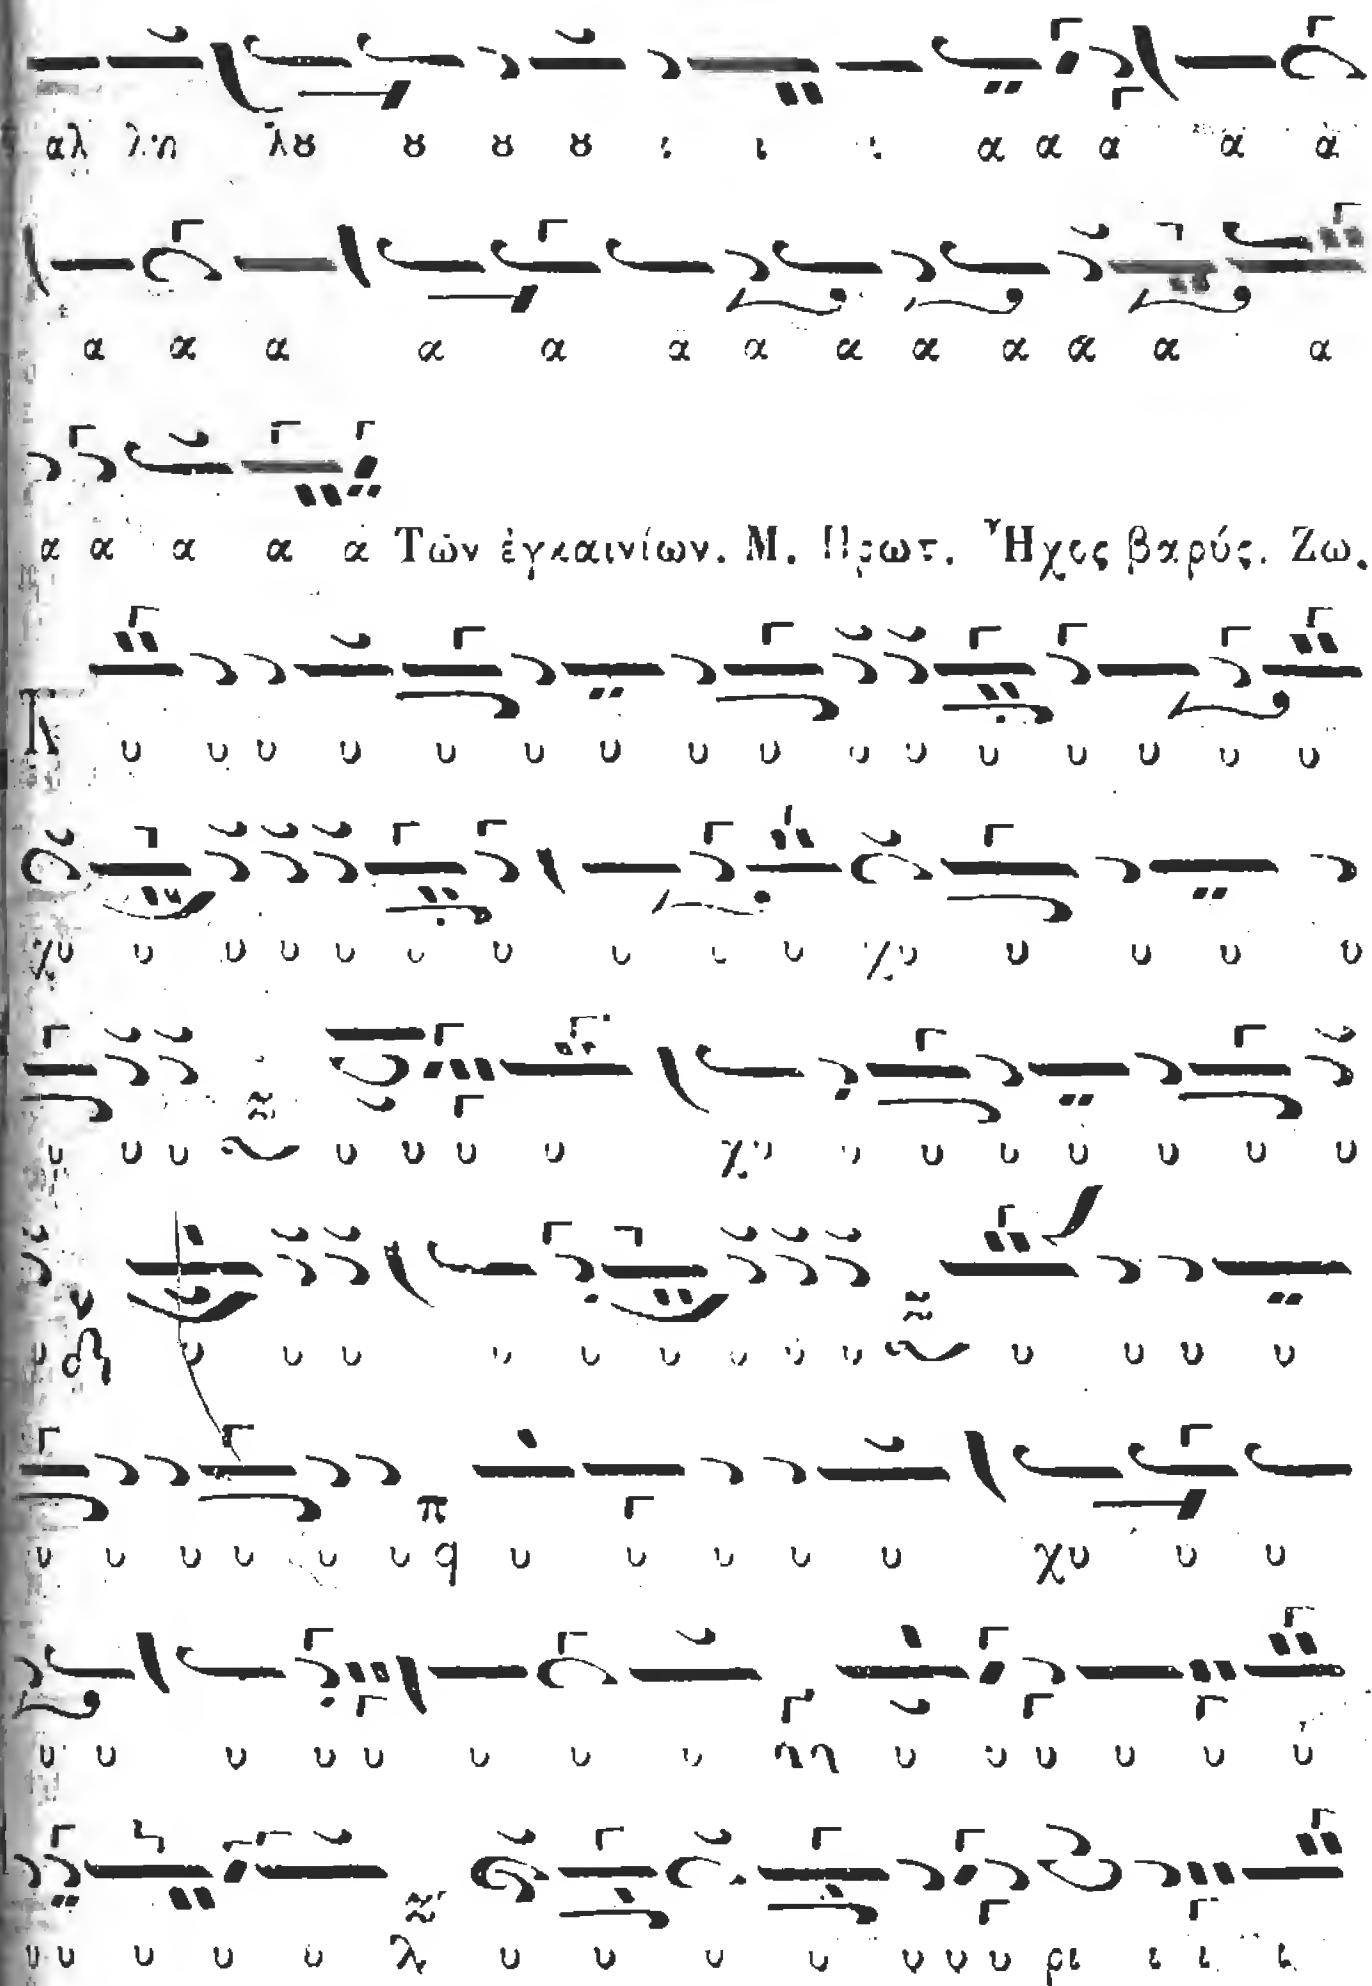 αλ λη λȣ ȣ ȣ ȣ ι ι ι α α α α α
α α α α α α α α α α α α α
α α α α α Τῶν ἐγκαινίων. Μ. Πρωτ. Ἦχος βαρύς. Ζω.
Κ υ υ υ υ υ υ υ υ υ υ υ υ υ υ υ υ
χυ υ υ υ υ υ υ υ υ υ χυ υ υ υ υ
υ υ υ υ υ υ υ χυ υ υ υ υ υ υ υ
υ υ υ υ υ υ υ υ υ υ υ υ υ υ
υ υ υ υ υ υ π q υ υ υ υ υ χυ υ υ
υ υ υ υ υ υ υ υ υ υ υ υ υ υ
υ υ υ υ υ λ υ υ υ υ υ υ υ ρι ι ι ι